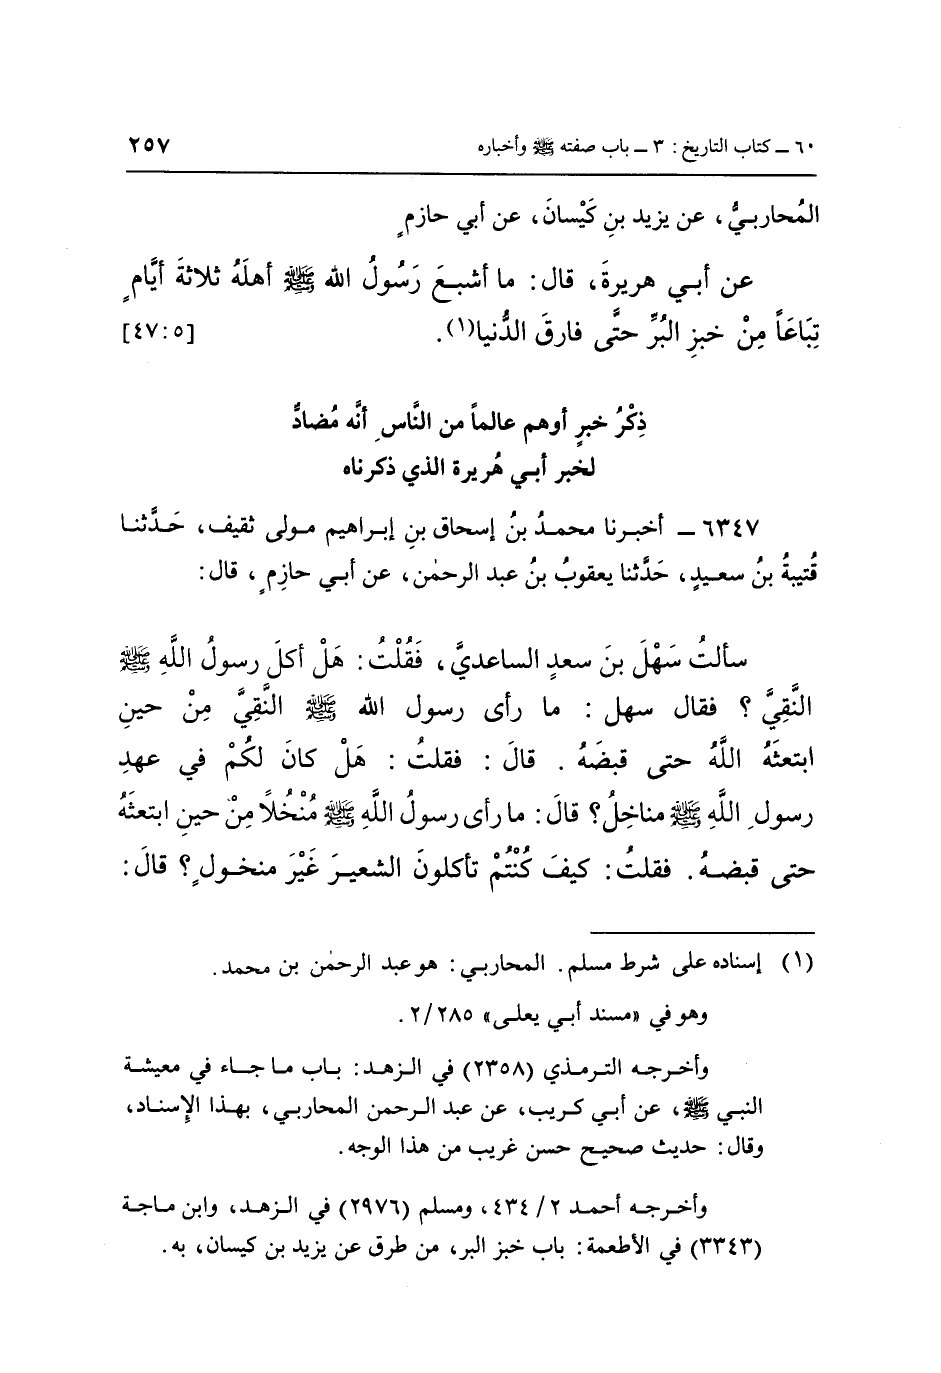 ٦٠ ـ كتاب التاريخ : ٣ ـ باب صفته ﷺ وأخباره ٢٥٧
المُحاربيُّ ، عن يزيد بنِ كَيْسانَ، عن أبي حازمٍ
عن أبي هريرةَ، قال: ما أشبعَ رَسُولُ الله ﷺ أهلَهُ ثلاثةَ أيَّامٍ
تِبَاعَاً مِنْ خبزِ البُرِّ حتَّى فارقَ الدُّنيا(١). [٤٧:٥]
ذِكْرُ خبرٍ أوهم عالماً من النَّاسِ أنَّه مُضادٌّ
لخبر أبي هُريرة الذي ذكرناه
٦٣٤٧ ـ أخبرنا محمدُ بنُ إسحاق بنِ إبراهيم مولى ثقيف، حَدَّثنا
قُتيبةُ بنُ سعيدٍ، حَدَّثنا يعقوبُ بنُ عبد الرحمٰن، عن أبي حازِمٍ ، قال:
سألتُ سَهْلَ بنَ سعدٍ الساعديَّ ، فَقُلْتُ: هَلْ أكلَ رسولُ اللَّهِ ﷺ
النَّقِيَّ ؟ فقال سهل : ما رأى رسول الله ﷺ النَّقِيَّ مِنْ حينِ
ابتعثَهُ اللَّهُ حتى قبضَهُ . قالَ : فقلتُ : هَلْ كانَ لكُمْ في عهدِ
رسولِ اللَّهِ ﷺ مناخِلُ؟ قالَ: ما رأى رسولُ اللَّهِ ﷺ مُنْخُلاً مِنْ حينِ ابتعثَهُ
حتى قبضهُ. فقلتُ: كيفَ كُنْتُمْ تأكلونَ الشعيرَ غَيْرَ منخولٍ؟ قالَ:
(١) إسناده على شرط مسلم. المحاربي: هو عبد الرحمٰن بن محمد.
وهو في «مسند أبي يعلى» ٢/٢٨٥ .
وأخرجه الترمذي (٢٣٥٨) في الزهد: باب ما جاء في معيشة
النبي ﷺ، عن أبي كريب، عن عبد الرحمن المحاربي، بهذا الإسناد،
وقال: حديث صحيح حسن غريب من هذا الوجه.
وأخرجه أحمد ٢/ ٤٣٤، ومسلم (٢٩٧٦) في الزهد، وابن ماجة
(٣٣٤٣) في الأطعمة: باب خبز البر، من طرق عن يزيد بن كيسان، به.